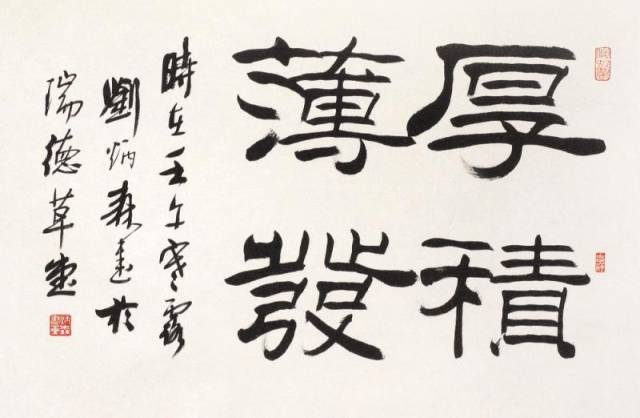 厚積
薄發
時在壬午寒露
劉炳森書於
瑞德草堂